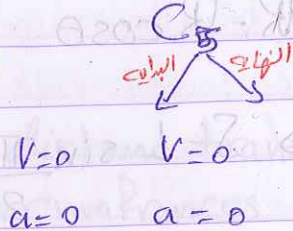 C5
البداية النهاية
V=0 V=0
a=0 a=0